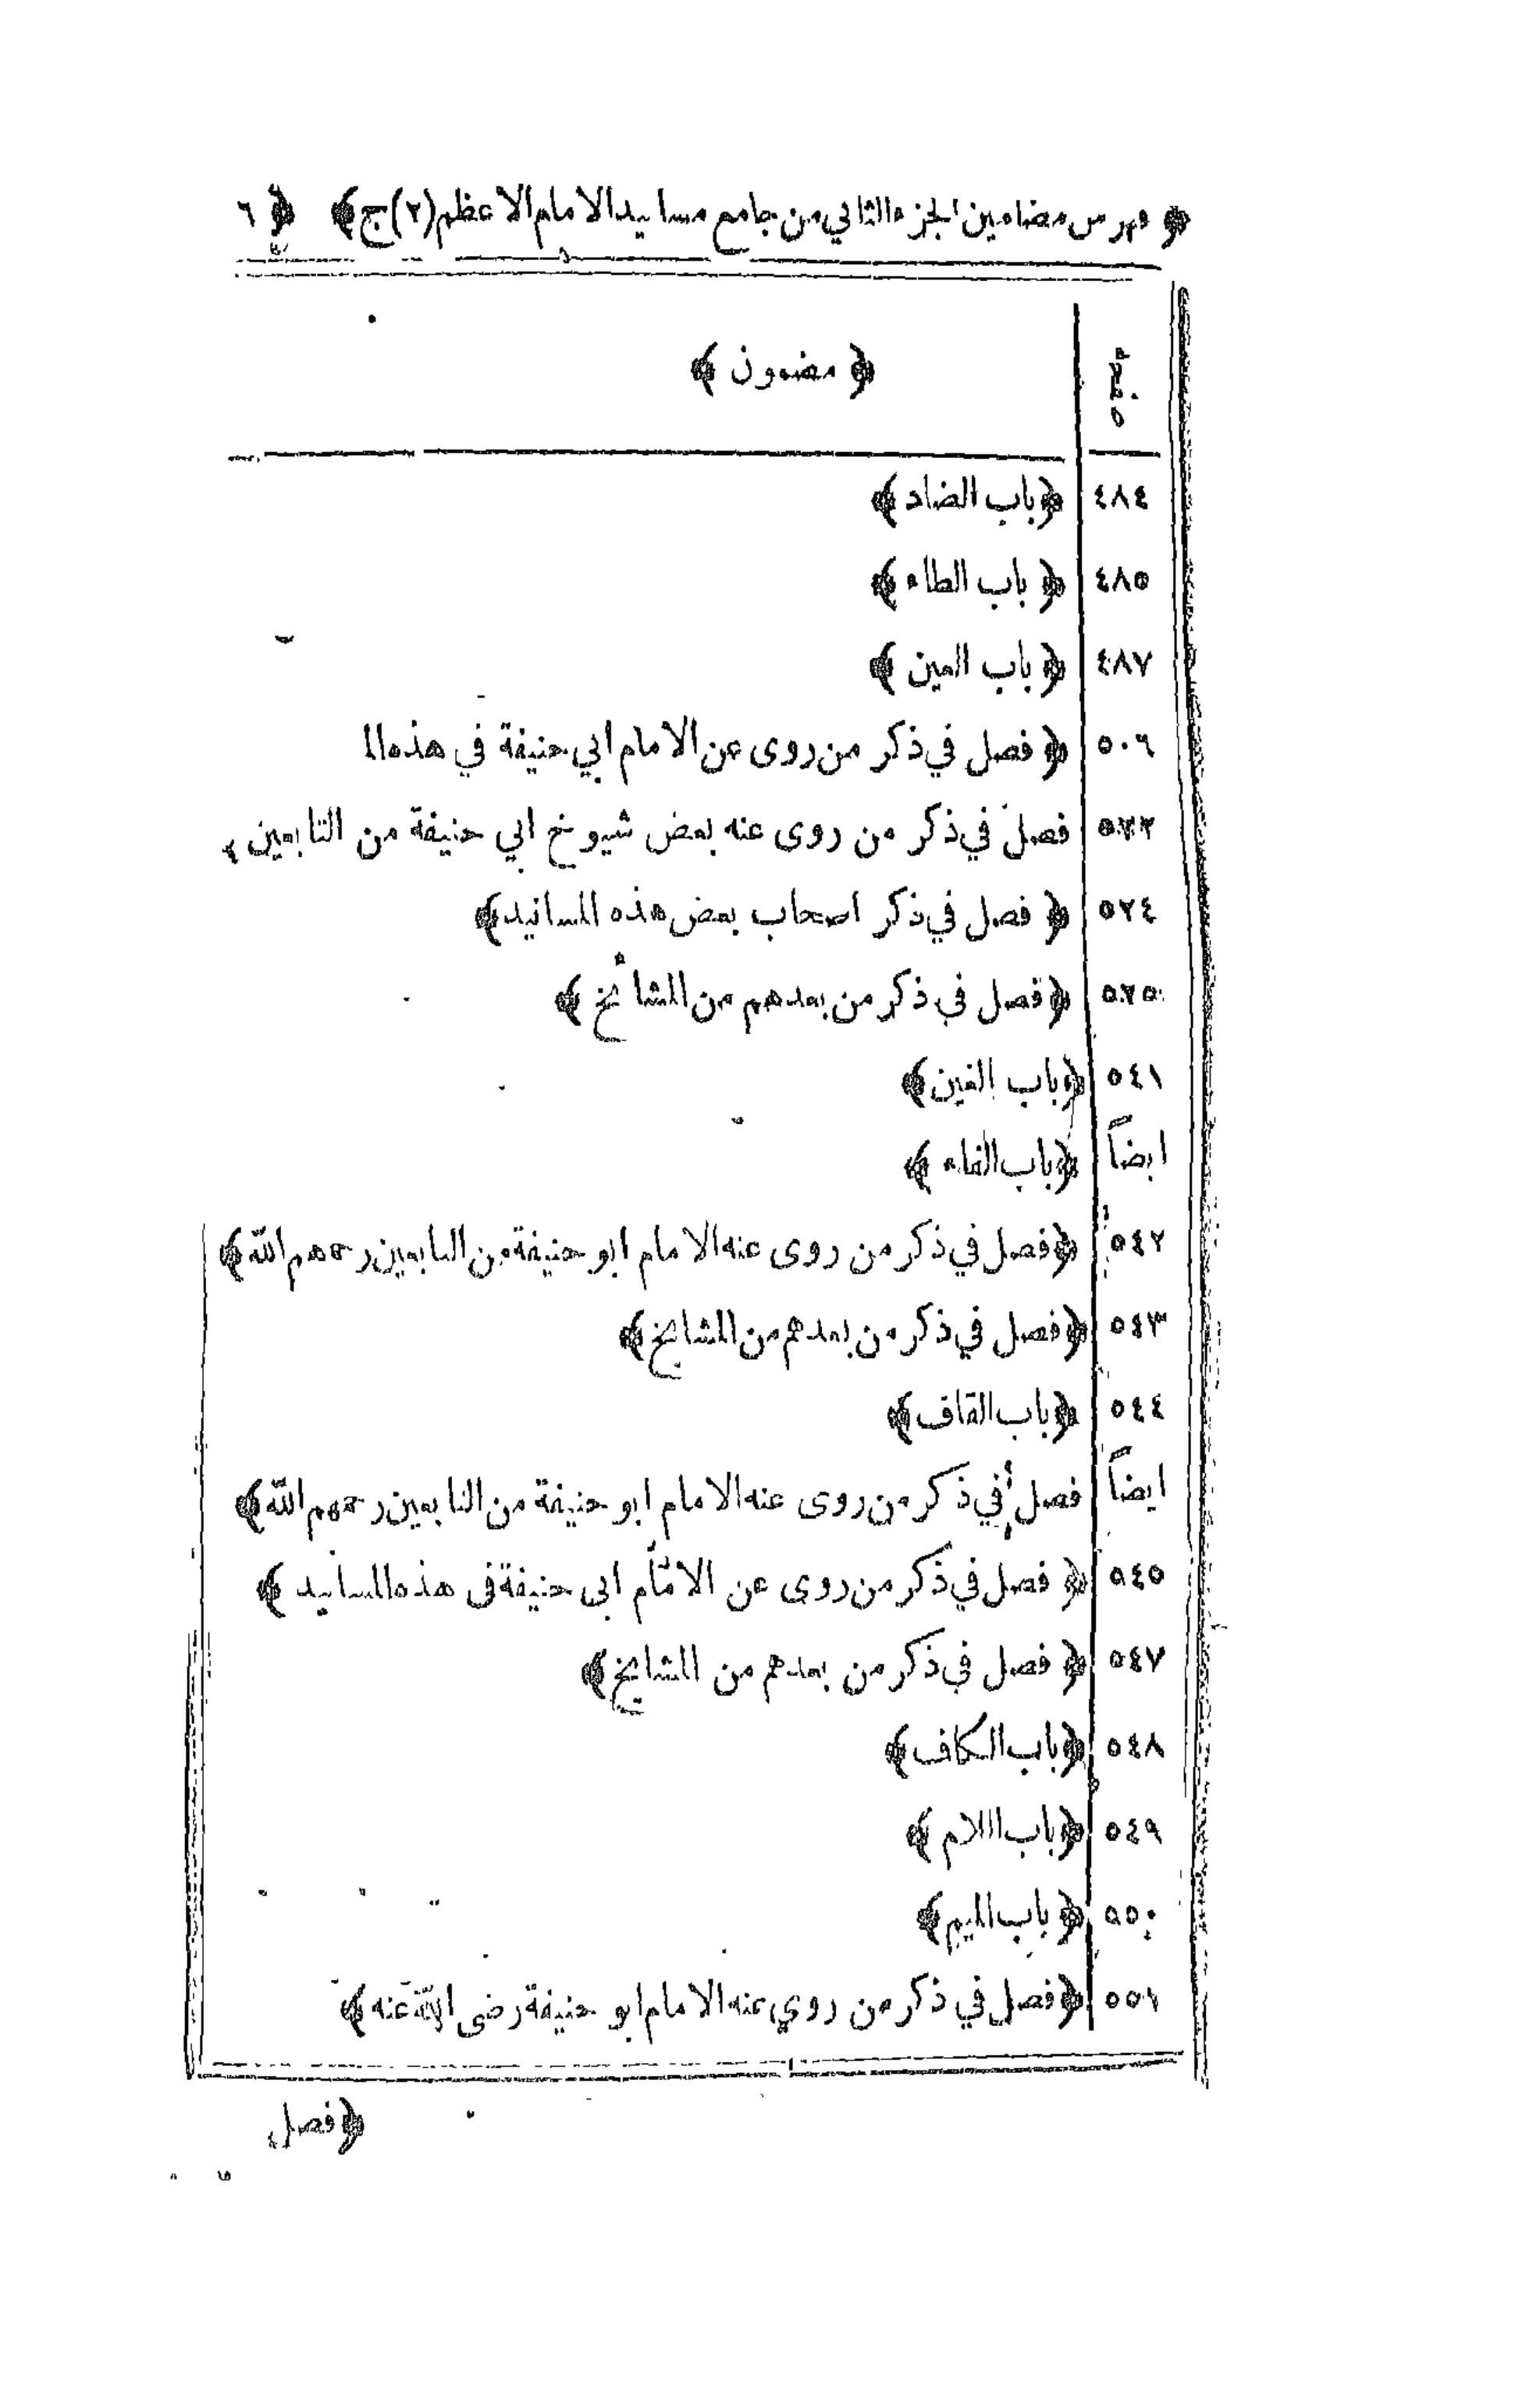 ﴿ فهرس مضامين الجزء الثاني من جامع مسانيد الامام الاعظم (٢) ج ﴾ ﴿ ٦
صفحه ﴿ مضمون ﴾
٤٨٤ ﴿ باب الضاد ﴾
٤٨٥ ﴿ باب الطاء ﴾
٤٨٧ ﴿ باب العين ﴾
٥٠٦ ﴿ فصل في ذكر من روى عن الامام ابي حنيفة في هذه الم
فصل في ذكر من روى عنه بعض شيوخ ابي حنيفة من التابعين
٥٢٤ ﴿ فصل في ذكر اصحاب بعض هذه المسانيد ﴾
٥٢٥ ﴿ فصل في ذكر من بعدهم من المشائخ ﴾
٥٤١ ﴿ باب الغين ﴾
ايضاً ﴿ باب الفاء ﴾
٥٤٢ ﴿ فصل في ذكر من روى عنه الامام ابو حنيفة من التابعين رحمهم الله ﴾
٥٤٣ ﴿ فصل في ذكر من بعدهم من المشايخ ﴾
٥٤٤ ﴿ باب القاف ﴾
ايضاً فصل في ذكر من روى عنه الامام ابو حنيفة من التابعين رحمهم الله ﴾
٥٤٥ ﴿ فصل في ذكر من روى عن الامام ابى حنيفة فى هذه المسانيد ﴾
٥٤٧ ﴿ فصل في ذكر من بعدهم من المشايخ ﴾
٥٤٨ ﴿ باب الكاف ﴾
٥٤٩ ﴿ باب اللام ﴾
٥٥٠ ﴿ باب الميم ﴾
٥٥١ ﴿ فصل في ذكر من روي عنه الامام ابو حنيفة رضى الله عنه ﴾
﴿ فصل